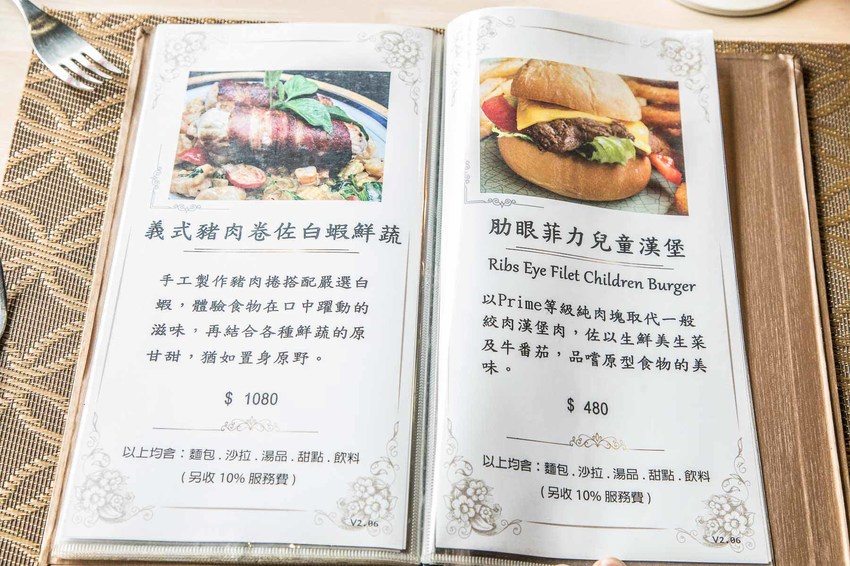 義式豬肉卷佐白蝦鮮蔬
手工製作豬肉捲搭配嚴選白
蝦，體驗食物在口中躍動的
滋味，再結合各種鮮蔬的原
甘甜，猶如置身原野。
$ 1080
以上均含：麵包．沙拉．湯品．甜點．飲料
(另收10%服務費)
V2.06
肋眼菲力兒童漢堡
Ribs Eye Filet Children Burger
以Prime等級純肉塊取代一般
絞肉漢堡肉，佐以生鮮美生菜
及牛番茄，品嚐原型食物的美
味。
$ 480
以上均含：麵包．沙拉．湯品．甜點．飲料
(另收10%服務費)
V2.06